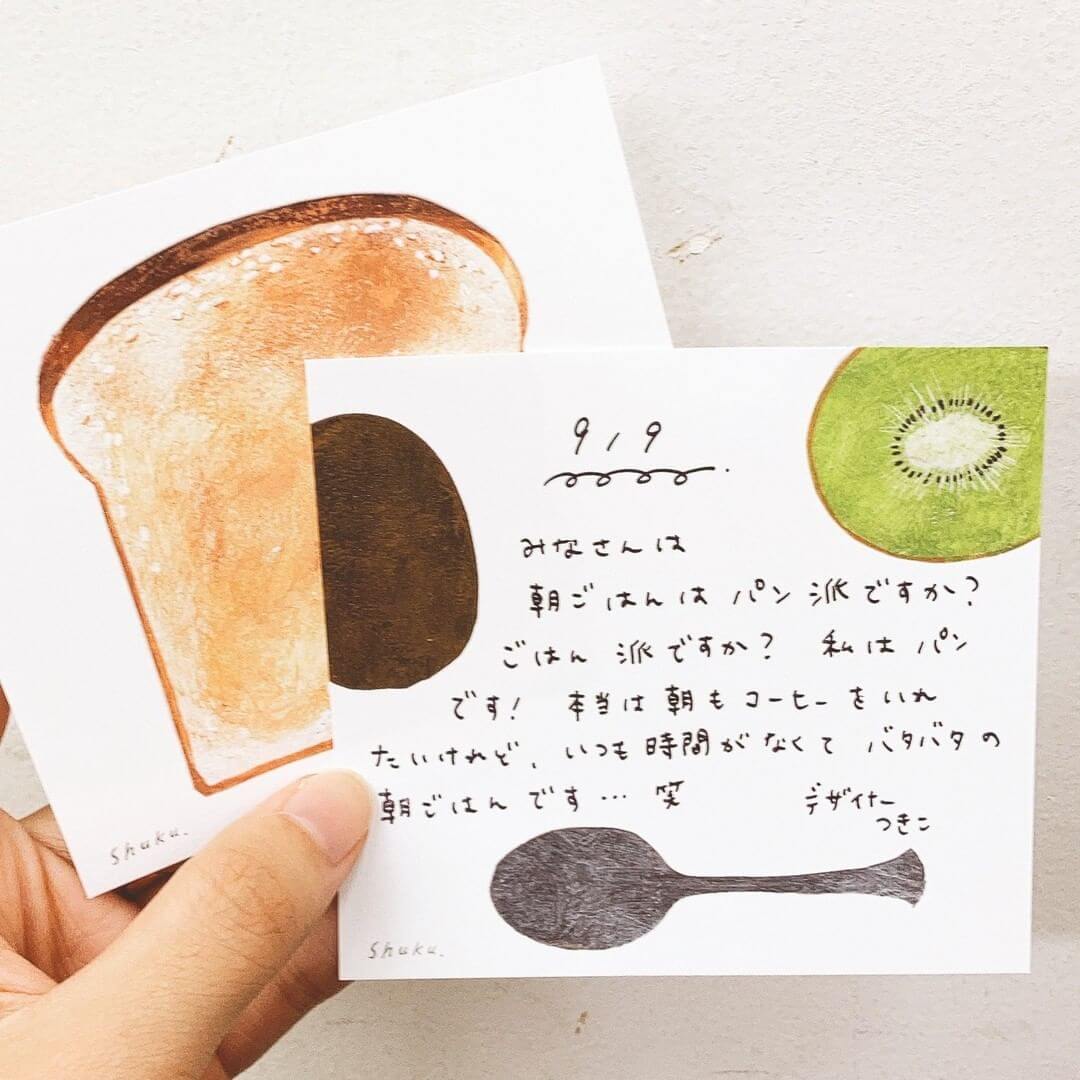 9/9
みなさんは
朝ごはんは パン派ですか?
ごはん派ですか? 私はパン
です! 本当は朝もコーヒーをいれ
たいけれど、いつも時間がなくて バタバタの
朝ごはんです… 笑
デザイナー
つきこ
shuku.
shuku.